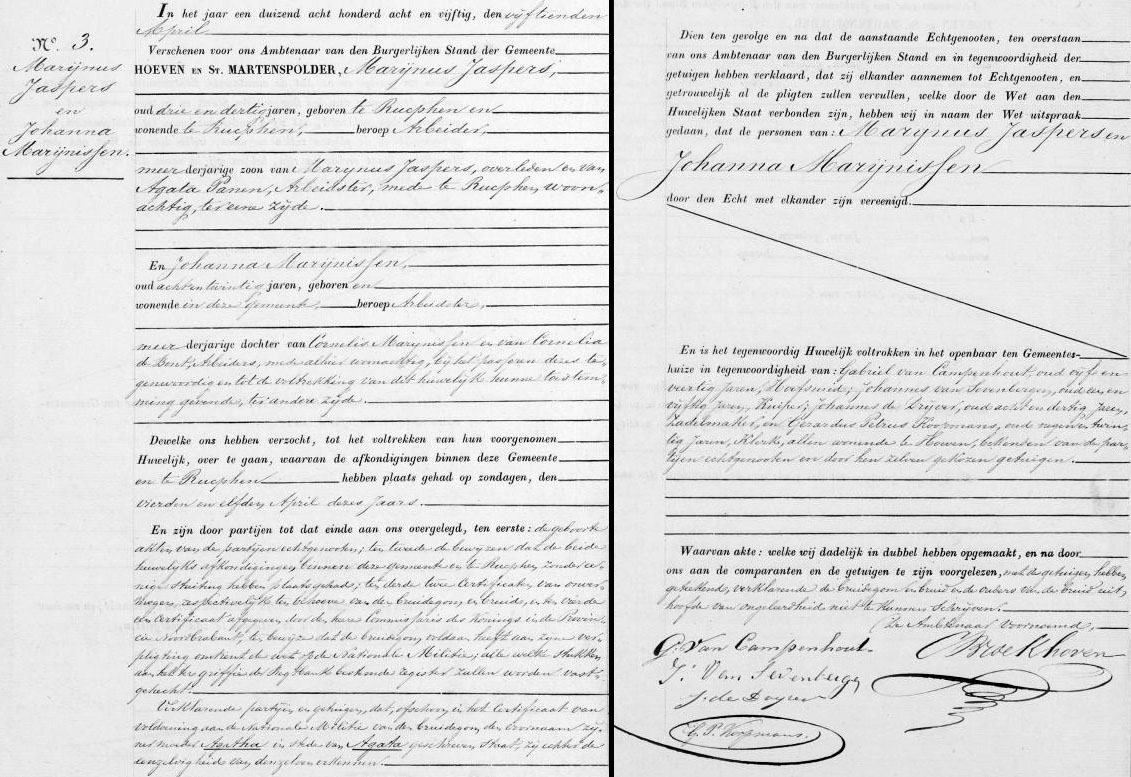 In het jaar een duizend acht honderd acht en vijftig, den vijftienden
April
No. 3.
Marijnus
Jaspers
en
Johanna
Marijnissen.
Verschenen voor ons Ambtenaar van den Burgerlijken Stand der Gemeente
HOEVEN EN ST. MARTENSPOLDER, Marijnus Jaspers,
oud drie en dertig jaren, geboren te Rucphen en
wonende te Rucphen, beroep Arbeider,
meerderjarige zoon van Marijnus Jaspers, overleden en van
Agata Panen, Arbeidster, mede te Rucphen woon-
achtig, ter eene zijde.
En Johanna Marijnissen,
oud achtentwintig jaren, geboren en
wonende in deze Gemeente, beroep Arbeidster,
meerderjarige dochter van Cornelis Marijnissen en van Cornelia
de Bont, Arbeiders, mede alhier woonachtig, bij het passeren dezes te-
genwoordig en tot de voltrekking van dit huwelijk hunne toestem-
ming gevende, ter andere zijde.
Dewelke ons hebben verzocht, tot het voltrekken van hun voorgenomen
Huwelijk, over te gaan, waarvan de afkondigingen binnen deze Gemeente
en te Rucphen hebben plaats gehad op zondagen, den
vierden en elfden April dezes Jaars.
En zijn door partijen tot dat einde aan ons overgelegd, ten eerste: de geboorte
akten van de partijen echtgenooten; ten tweede de bewijzen dat de beide
huwelijks afkondigingen binnen deze gemeente en te Rucphen zonder ee-
nige stuiting hebben plaats gehad; ten derde twee Certificaten van onver-
mogen, respectivelijk ten behoeve van den bruidegom en bruid, en ten vierde
een Certificaat afgegeven door den heer Commissaris des Konings in de Provin-
cie Noordbrabant, ten bewijze dat de bruidegom voldaan heeft aan zijne ver-
pligting omtrent de dienst op de Nationale Militie; alle welke stukken
aan het ter griffie der Regtbank berustende register zullen worden vast-
gehecht.
Verklarende partijen en getuigen, dat, ofschoon in het Certificaat van
voldoening aan de Nationale Militie van den bruidegom den voornaam zij-
ner moeder Agatha in stede van Agata geschreven staat, zij echter de
eenzelvigheid van dezelve erkennen.
Dien ten gevolge en na dat de aanstaande Echtgenooten, ten overstaan
van ons Ambtenaar van den Burgerlijken Stand en in tegenwoordigheid der
getuigen hebben verklaard, dat zij elkander aannemen tot Echtgenooten, en
getrouwelijk al de pligten zullen vervullen, welke door de Wet aan den
Huwelijken Staat verbonden zijn, hebben wij in naam der Wet uitspraak
gedaan, dat de personen van: Marijnus Jaspers en
Johanna Marijnissen
door den Echt met elkander zijn vereenigd.
En is het tegenwoordig Huwelijk voltrokken in het openbaar ten Gemeentes-
huize in tegenwoordigheid van: Gabriel van Campenhout, oud vijf en
veertig Jaren, Hoefsmid; Johannes van Sevenbergen, oud een en
vijftig jaren, Kuiper; Johannes de Drijver, oud acht en dertig Jaren,
Zadelmaker, en Gerardus Petrus Koopmans, oud negen en twin-
tig Jaren, Klerk, allen wonende te Hoeven, bekenden van de par-
tijen echtgenooten en door hen zelven gekozen getuigen.
Waarvan akte: welke wij dadelijk in dubbel hebben opgemaakt, en na door
ons aan de comparanten en de getuigen te zijn voorgelezen, met de getuigen hebben
geteekend, verklarende de bruidegom en bruid en de ouders van de bruid uit
hoofde van ongeleerdheid niet te kunnen Schrijven.
De Ambtenaar voornoemd,
G. Van Campenhout
J. Van Sevenbergen
CBroekhoven
G. P. Koopmans.